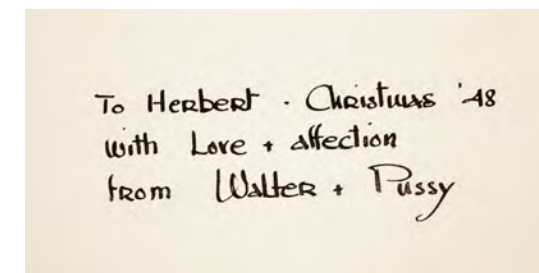 To Herbert · Christmas '48
with Love + affection
from Walter + Pussy